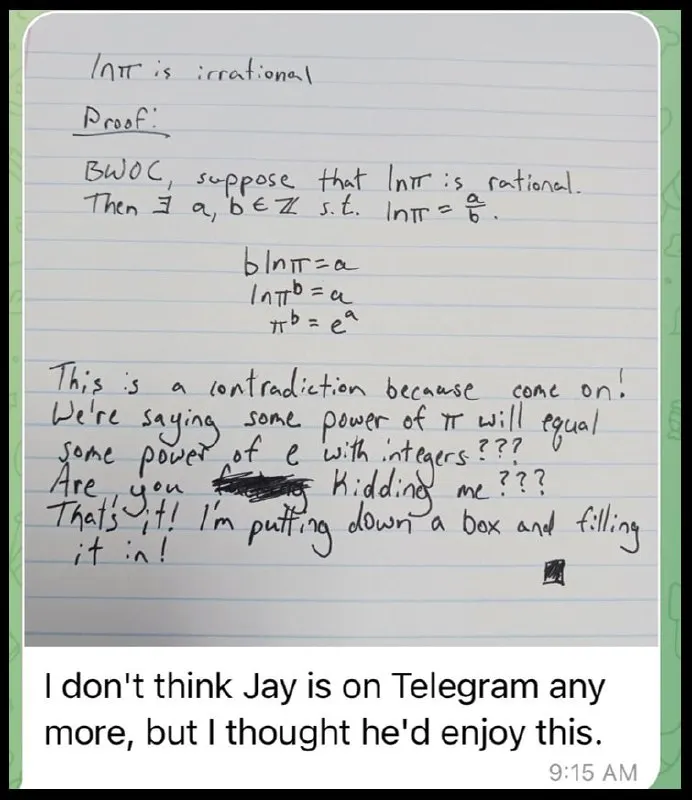 lnπ is irrational
Proof:
BWOC, suppose that lnπ is rational.
Then ∃ a, b ∈ ℤ s.t. lnπ = a/b.
b lnπ = a
lnπᵇ = a
πᵇ = eᵃ
This is a contradiction because come on!
We're saying some power of π will equal
some power of e with integers???
Are you kidding me???
That's it! I'm putting down a box and filling
it in!
I don't think Jay is on Telegram any
more, but I thought he'd enjoy this.
9:15 AM